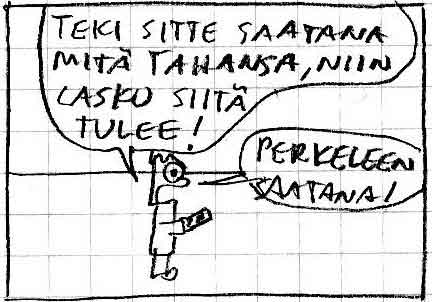 TEKI SITTE SAATANA
MITÄ TAHANSA, NIIN
LASKU SIITÄ
TULEE!
PERKELEEN
SAATANA!